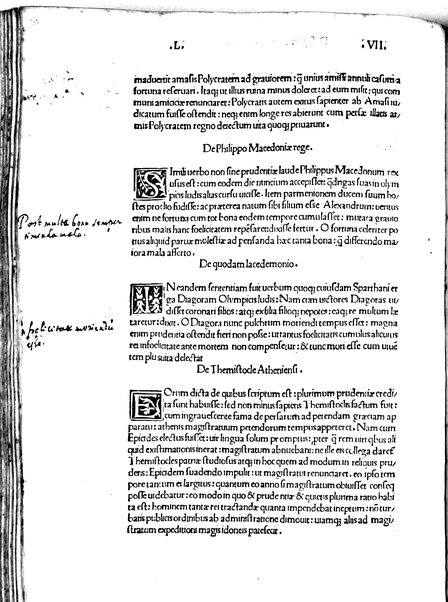 .L. .VII.
maduertit amasis Polycratem ad grauiorem: q̄ unius amissi annuli casum a
fortuna reseruari. Itaq; ut illius ruina minus doleret: ad eum misit: qui com
muni amicitiæ renunciaret: Polycratis autem exitus sapienter ab Amasi iu/
dicatum fuisse ostendit: neq; enim longe res abierunt cum persæ illatis ar/
mis Polycratem regno deiectum uita quoq; priuarunt.
De Philippo Macedoniæ rege.
SImili uerbo non sine prudentiæ laude Philippus Macedonum rex
usus est: cum eodem die nuncium accepisset: q̄drigas suas in olym
piis ludis alias cursu uicisse. Item parmenionem ducem suum ho/
stes prœlio fudisse: ac præterea natum sibi filium esse Alexandrum: ueritus
enim ne fortuna cum tot bona eodem tempore cumulasset: mutata grauio
ribus malis hanc fœlicitatem dixisse fertur. O fortuna celeriter po
tius aliquid paruæ molestiæ ad pensanda hæc tanta bona: q̄ differendo ma
iora mala afferto.
Post multa bona semper
timenda mala.
De quodam lacedemonio.
IN eandem sententiam fuit uerbum quoq; cuiusdam Sparthani er
ga Diagoram Olympicis ludis: Nam cum uictores Diagoras ui/
disset coronari filios: atq; ex filia filioq; nepotes: eaq; re multum læ
taretur: dixit. O Diagora nunc pulchrum moriendi tempus esset: magna
enim prudentia ostendit fieri non posse: ut tantus fœlicitatis cumulus alicuius
rei infœlicitate ante mortem non compensetur: & tunc mori esse cum uitæ
tem plu suita delectat
in fœlicitate moriendū
esse.
De Themistocle Atheniensi.
EOrum dicta de quibus scriptum est: plurimum prudentiæ credi/
ta sunt habuisse: sed non minus sapiens Themistoclis factum fuit:
cum ingrauescente fama de persarum ad petendam græciam ap
paratu: athenis magistratuum petendorum tempus appeteret. Nam cum
Epicides electus fuisset: uir lingua solum promptus: ꝓpter q̄ rem uiri qbus ali
quid existimationis inerat: magistratum abnuebant: ne ille eis collega daret
Themistocles patriæ studiosus atq; in hoc quem ad modum in reliquis pru/
dens: Epicidem suadendo impulit: ut magistratui renunciaret. eo ipso tem
pore tantum ei largitus: quantum eo anno si magistratum obtinuisset conseq
posse uidebatur: eo modo in quo & prudentiæ & quietis plurima ratio habi
ta est: hominem tantæ rei tractandæ quanta impendebat ineptum: nō tur/
batis publicis ordinibus ab administratione dimouit: uiamq; aliis ad magi/
stratum expeditioni magis idoneis patefecit.